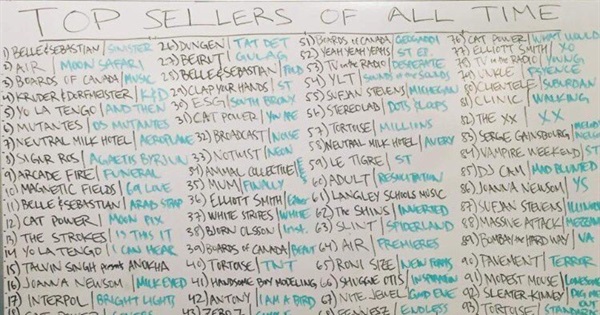 TOP SELLERS OF ALL TIME
1) BELLE & SEBASTIAN / SINISTER
2) AIR / MOON SAFARI
3) BOARDS OF CANADA / MUSIC
4) KRUDER & DORFMEISTER / K&D
5) YO LA TENGO / AND THEN
6) MUTANTES / OS MUTANTES
7) NEUTRAL MILK HOTEL / AEROPLANE
8) SIGUR ROS / AGAETIS BYRJUN
9) ARCADE FIRE / FUNERAL
10) MAGNETIC FIELDS / 69 LOVE
11) BELLE & SEBASTIAN / ARAB STRAP
12) CAT POWER / MOON PIX
13) THE STROKES / IS THIS IT
14) YO LA TENGO / I CAN HEAR
15) TALVIN SINGH ANOKHA
16) JOANNA NEWSOM / MILK EYED
17) INTERPOL / BRIGHT LIGHTS
18) CAT POWER
26) DUNGEN / TAT DET
27) BEIRUT / GULAG
28) BELLE & SEBASTIAN / FOLD
29) CLAP YOUR HANDS / ST
30) ESG / SOUTH BRONX
31) CAT POWER / YOU ARE
32) BROADCAST / NOISE
33) NOTWIST / NEON
34) ANIMAL COLLECTIVE
35) MUM / FINALLY
36) ELLIOTT SMITH / EITHER
37) WHITE STRIPES / WHITE
38) BJORN OLSSON / INST.
39) BOARDS OF CANADA / BEAUT
40) TORTOISE / TNT
41) HANDSOME BOY MODELING
42) ANTONY / I AM A BIRD
43) ZERO 7
51) BOARDS OF CANADA / GEOGADDI
52) YEAH YEAH YEAHS / ST EP.
53) TV ON THE RADIO / DESPERATE
54) YLT / SOUNDS OF THE SOUNDS
55) SUFJAN STEVENS / MICHIGAN
56) STEREOLAB / DOTS & LOOPS
57) TORTOISE / MILLIONS
58) NEUTRAL MILK HOTEL / AVERY
59) LE TIGRE / ST
60) ADULT / RESUSCITATION
61) LANGLEY SCHOOLS MUSIC
62) THE SHINS / INVERTED
63) SLINT / SPIDERLAND
64) AIR / PREMIERES
65) RONI SIZE / NEW FORMS
66) SHUGGIE OTIS / INSPIRATION
67) NITE JEWEL / GOOD EVE
68) FENNESZ / ENDLESS
76) CAT POWER / WHAT WOULD
77) ELLIOTT SMITH / XO
78) TV ON THE RADIO / YOUNG
79) UNKLE / PSYENCE
80) CLIENTELE / SUBURBAN
81) CLINIC / WALKING
82) THE XX / XX
83) SERGE GAINSBOURG
84) VAMPIRE WEEKEND / ST
85) DJ CAM / MAD BLUNTED
86) JOANNA NEWSOM / YS
87) SUFJAN STEVENS / ILLINOIS
88) MASSIVE ATTACK / MEZZANINE
89) BOMBAY THE HARD WAY / VA
90) PAVEMENT / TERROR
91) MODEST MOUSE / LONESOME
92) SLEATER-KINNEY / DIG ME OUT
93) TORTOISE / STANDARDS